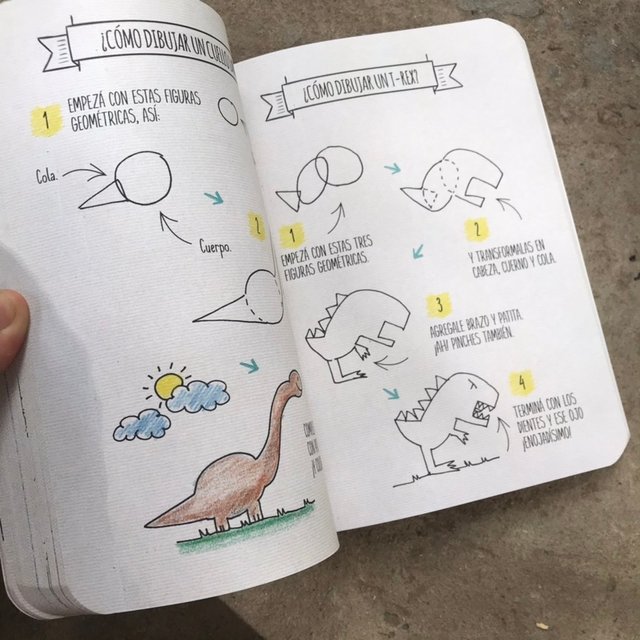 ¿CÓMO DIBUJAR UN
1
EMPEZÁ CON ESTAS FIGURAS
GEOMÉTRICAS, ASÍ:
Cola.
Cuerpo.
2
¿CÓMO DIBUJAR UN T-REX?
1
EMPEZÁ CON ESTAS TRES
FIGURAS GEOMÉTRICAS.
2
Y TRANSFORMALAS EN
CABEZA, CUERNO Y COLA.
3
AGREGALE BRAZO Y PATITA.
¡AH! PINCHES TAMBIÉN.
4
TERMINÁ CON LOS
DIENTES Y ESE OJO
¡ENOJADÍSIMO!